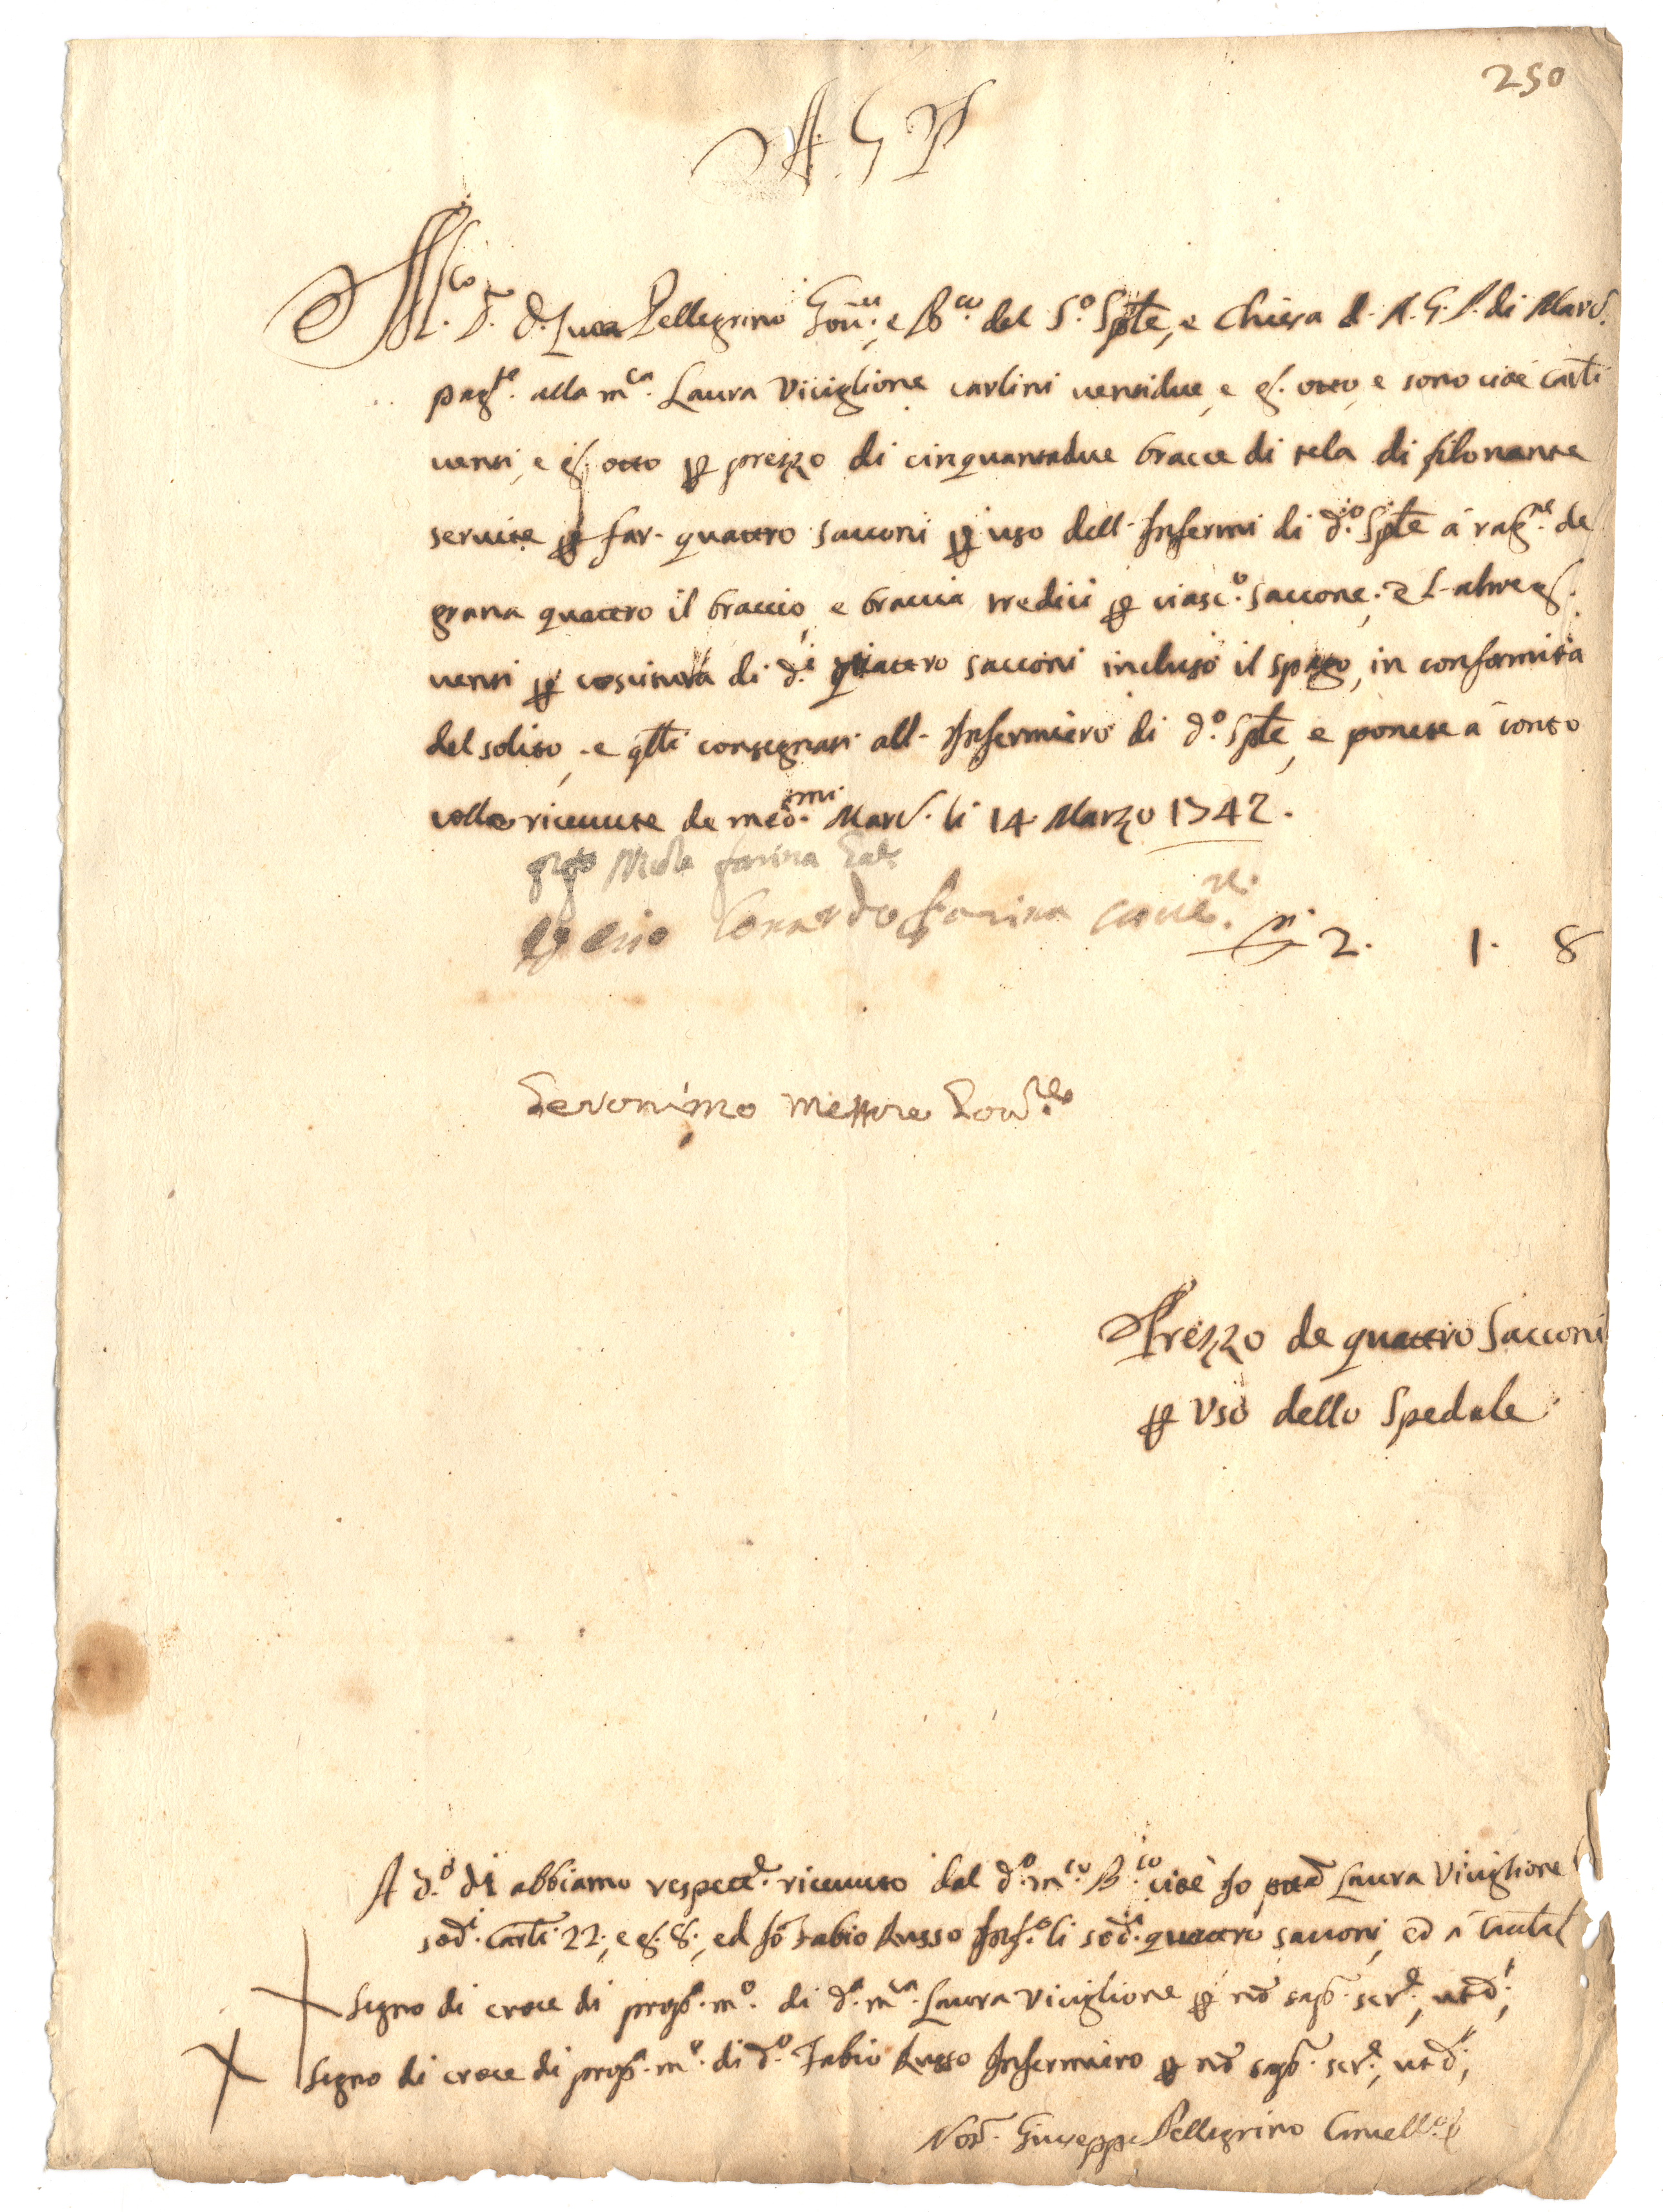 250
A. G. P.
M.co S.r D. Luca Pellegrino Gov.re, e B.co del S.o Sple, e Chiesa d. A. G. P. di Mard.
pag.te alla m.ca Laura Viviglione carlini ventidue, e g. otto, e sono cioè carli
venti, e g. otto per prezzo di cinquantadue bracce di tela di filonante
servite per far quattro sacconi per uso dell Infermi di d.o Sple à rag.ne de
grana quattro il braccio, e braccia tredici per ciasc.o saccone; e l-altre g.
venti per cositura di d.i quattro sacconi incluso il spago, in conformità
del solito, e qlli consegnati all Infermiero di d.o Sple, e ponete à conto
colle ricevute de med.mi Mard. li 14 Marzo 1742.
farina
Lonardo farina
2. 1. 8
Geronimo Gov.re
Prezzo de quattro Sacconi
per Uso dello Spedale
A d.o dì abbiamo respett.e ricevuto dal d.o m.co B.co cioè Io Laura Viviglione
sod.i carli 22, e g. 8, ed Io Fabio Russo Inf.o li sod.i quattro sacconi, ed à
Segno di croce di prop.a m.o di d.a m.ca Laura Viviglione per nō sap. scr.e, ut d.r;
Segno di croce di prop.a m.o di d.o Fabio Russo Infermiero per nō sap. scr.e, ut d.r;
Not. Giuseppe Pellegrino